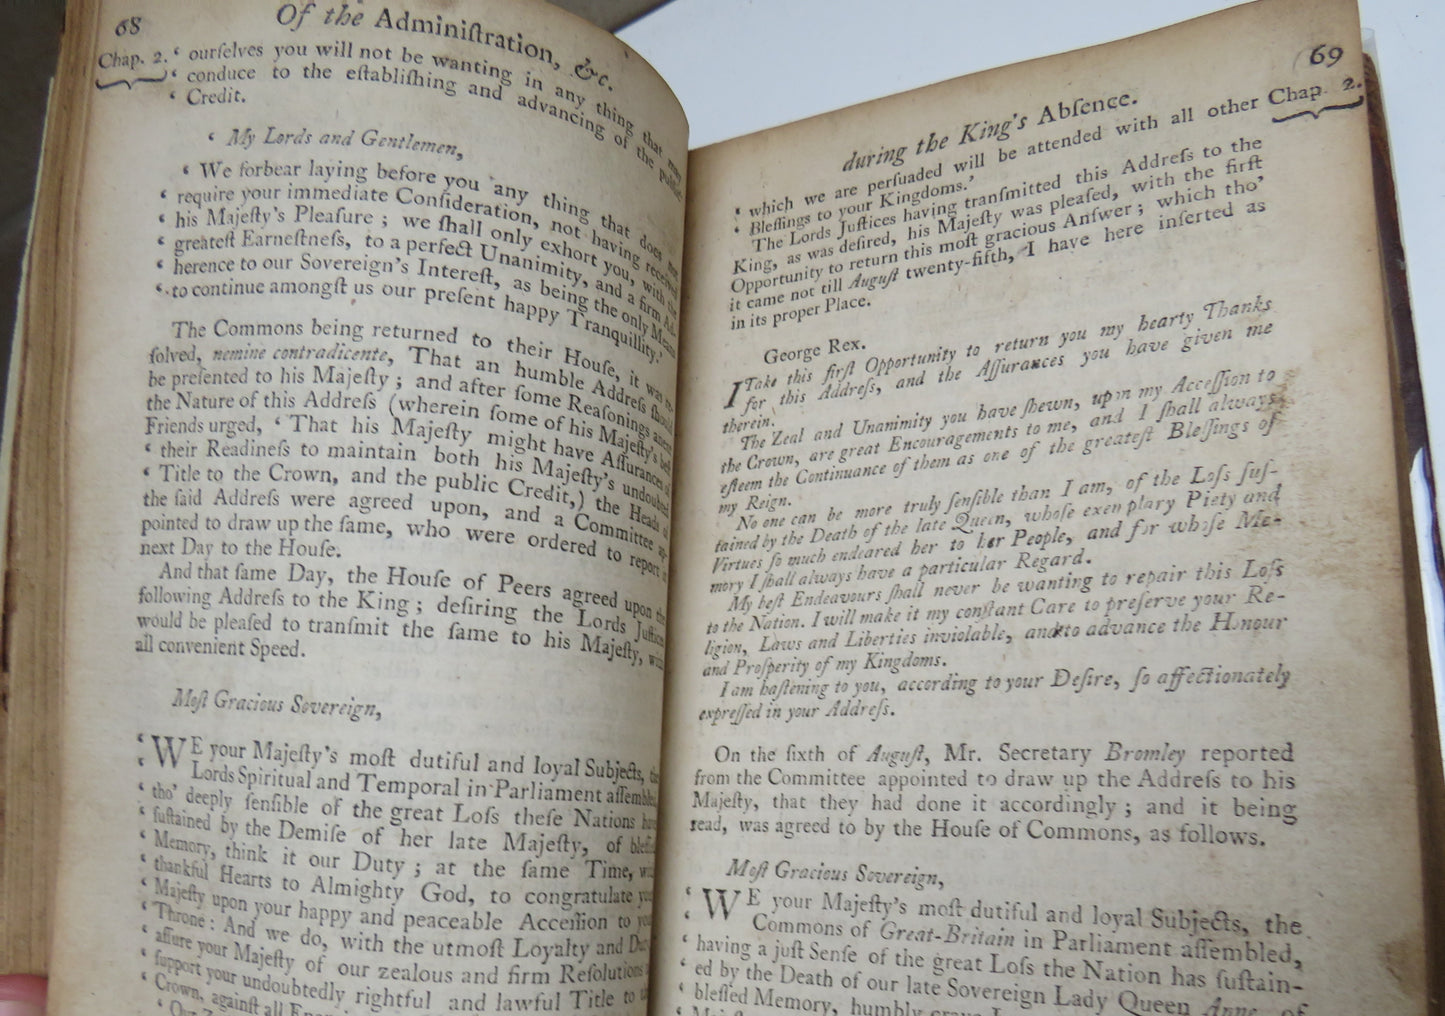 68
Of the Adminiſtration, &c.
Chap. 2.
‘ ourſelves you will not be wanting in any thing that may
‘ conduce to the eſtabliſhing and advancing of the publick
‘ Credit.
‘ My Lords and Gentlemen,
‘ We forbear laying before you any thing that does not
‘ require your immediate Conſideration, not having received
‘ his Majeſty's Pleaſure ; we ſhall only exhort you, with the
‘ greateſt Earneſtneſs, to a perfect Unanimity, and a firm Ad-
‘ herence to our Sovereign's Intereſt, as being the only Means
‘ to continue amongſt us our preſent happy Tranquillity.’
The Commons being returned to their Houſe, it was re-
ſolved, nemine contradicente, That an humble Addreſs ſhould
be preſented to his Majeſty ; and after ſome Reaſonings anent
the Nature of this Addreſs (wherein ſome of his Majeſty's beſt
Friends urged, ‘ That his Majeſty might have Aſſurances of
‘ their Readineſs to maintain both his Majeſty's undoubted
‘ Title to the Crown, and the public Credit,) the Heads of
the ſaid Addreſs were agreed upon, and a Committee ap-
pointed to draw up the ſame, who were ordered to report it
next Day to the Houſe.
And that ſame Day, the Houſe of Peers agreed upon the
following Addreſs to the King ; deſiring the Lords Juſtices
would be pleaſed to tranſmit the ſame to his Majeſty, with
all convenient Speed.
Moſt Gracious Sovereign,
‘ WE your Majeſty's moſt dutiful and loyal Subjects, the
‘ Lords Spiritual and Temporal in Parliament aſſembled,
‘ tho' deeply ſenſible of the great Loſs theſe Nations have
‘ ſuſtained by the Demiſe of her late Majeſty, of bleſſed
‘ Memory, think it our Duty ; at the ſame Time, with
‘ thankful Hearts to Almighty God, to congratulate your
‘ Majeſty upon your happy and peaceable Acceſſion to your
‘ Throne : And we do, with the utmoſt Loyalty and Duty
‘ aſſure your Majeſty of our zealous and firm Reſolutions to
‘ ſupport your undoubtedly rightful and lawful Title to the
‘ Crown, againſt all
‘ Our
69
during the King's Abſence.
Chap. 2.
‘ which we are perſuaded will be attended with all other
‘ Bleſſings to your Kingdoms.’
The Lords Juſtices having tranſmitted this Addreſs to the
King, as was deſired, his Majeſty was pleaſed, with the firſt
Opportunity to return this moſt gracious Anſwer ; which tho'
it came not till Auguſt twenty-fifth, I have here inſerted as
in its proper Place.
George Rex.
I Take this firſt Opportunity to return you my hearty Thanks
for this Addreſs, and the Aſſurances you have given me
therein.
The Zeal and Unanimity you have ſhewn, upon my Acceſſion to
the Crown, are great Encouragements to me, and I ſhall always
eſteem the Continuance of them as one of the greateſt Bleſſings of
my Reign.
No one can be more truly ſenſible than I am, of the Loſs ſuſ-
tained by the Death of the late Queen, whoſe exemplary Piety and
Virtues ſo much endeared her to her People, and for whoſe Me-
mory I ſhall always have a particular Regard.
My beſt Endeavours ſhall never be wanting to repair this Loſs
to the Nation. I will make it my conſtant Care to preſerve your Re-
ligion, Laws and Liberties inviolable, and to advance the Honour
and Proſperity of my Kingdoms.
I am haſtening to you, according to your Deſire, ſo affectionately
expreſſed in your Addreſs.
On the ſixth of Auguſt, Mr. Secretary Bromley reported
from the Committee appointed to draw up the Addreſs to his
Majeſty, that they had done it accordingly ; and it being
read, was agreed to by the Houſe of Commons, as follows.
Moſt Gracious Sovereign,
‘ WE your Majeſty's moſt dutiful and loyal Subjects, the
‘ Commons of Great-Britain in Parliament aſſembled,
‘ having a juſt Senſe of the great Loſs the Nation has ſuſtain-
‘ ed by the Death of our late Sovereign Lady Queen Anne, of
‘ bleſſed Memory, humbly